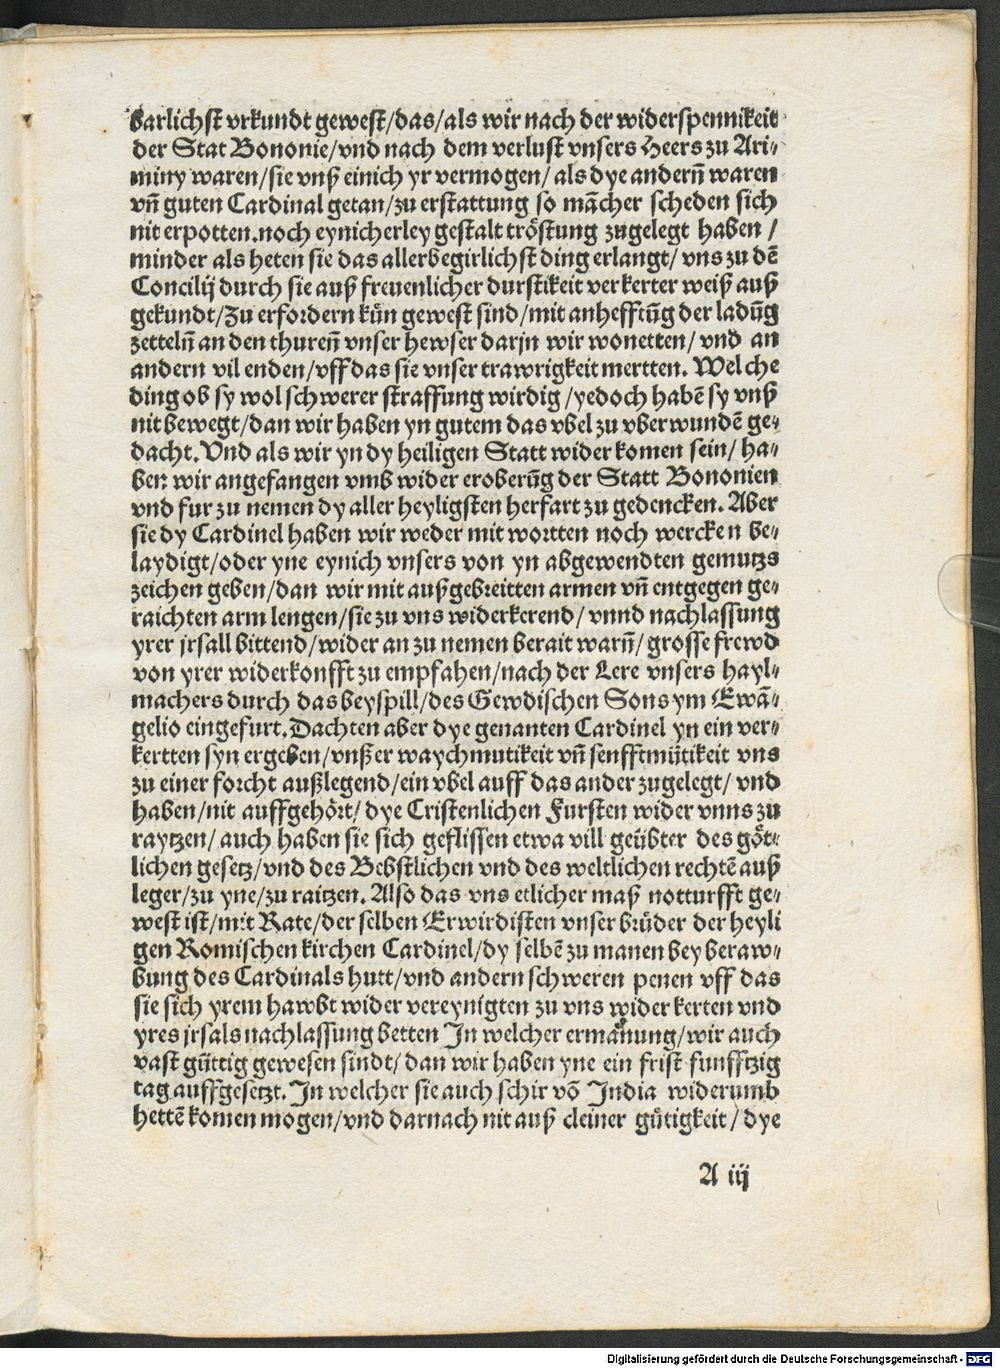 barlichst vrkundt gewest/das/als wir nach der widerspennikeit
der Stat Bononie/vnd nach dem verlust vnsers Heers zu Ari⸗
miny waren/sie vnß einich yr vermogen/ als dye andern̄ waren
vn̄ guten Cardinal getan/zu erstattung so mācher scheden sich
nit erpotten.noch eynicherley gestalt tröstung zugelegt haben /
minder als heten sie das allerbegirlichst ding erlangt/ vns zu dē
Concilij durch sie auß freuenlicher durstikeit verkerter weiß auß
gekundt/Zu erfordern kün gewest sind/mit anhefftūg der ladūg
zetteln̄ an den thuren̄ vnser hewser darjn wir wonetten/ vnd an
andern vil enden/vff das sie vnser trawrigkeit mertten. Welche
ding ob sy wol schwerer straffung wirdig/yedoch habē sy vnß
nit bewegt/dan wir haben yn gutem das vbel zu vberwundē ge⸗
dacht. Vnd als wir yn dy heiligen Statt wider komen sein/ ha⸗
ben wir angefangen vmb wider eroberūg der Statt Bononien
vnd fur zu nemen dy aller heyligsten herfart zu gedencken. Aber
sie dy Cardinel haben wir weder mit wortten noch wercken be⸗
laydigt/oder yne eynich vnsers von yn abgewendten gemutzs
zeichen geben/dan wir mit außgebreitten armen vn̄ entgegen ge⸗
raichten arm lengen/sie zu vns widerkerend/ vnnd nachlassung
yrer jrsall bittend/wider an zu nemen berait warn̄/ grosse frewd
von yrer widerkonfft zu empfahen/nach der Lere vnsers hayl⸗
machers durch das beyspill/des Gewdischen Sons ym Ewā⸗
gelio eingefurt. Dachten aber dye genanten Cardinel yn ein ver⸗
kertten syn ergeben/vnßer waychmutikeit vn̄ senfftmütikeit vns
zu einer forcht außlegend/ein vbel auff das ander zugelegt/ vnd
haben/nit auffgehört/ dye Cristenlichen Fursten wider vnns zu
raytzen/ auch haben sie sich geflissen etwa vill geübter des göt⸗
lichen gesetz/vnd des Bebstlichen vnd des weltlichen rechtē auß
leger/zu yne/zu raitzen. Also das vns etlicher maß notturfft ge⸗
west ist/mit Rate/der selben Erwirdisten vnser brüder der heyli
gen Romischen kirchen Cardinel/dy selbē zu manen bey beraw⸗
bung des Cardinals hutt/vnd andern schweren penen vff das
sie sich yrem hawbt wider vereynigten zu vns wider kerten vnd
yres jrsals nachlassung betten In welcher ermanung/wir auch
vast güttig gewesen sindt/ dan wir haben yne ein frist funfftzig
tag auffgesetzt. In welcher sie auch schir vō India widerumb
hettē komen mogen/vnd darnach nit auß cleiner gütigkeit / dye
A iij
Digitalisierung gefördert durch die Deutsche Forschungsgemeinschaft - DFG